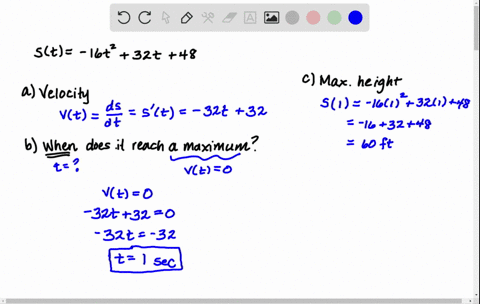 s(t) = -16t² + 32t + 48
a) Velocity
v(t) = ds/dt = s'(t) = -32t + 32
b) When does it reach a maximum?
t = ?
v(t) = 0
v(t) = 0
-32t + 32 = 0
-32t = -32
t = 1 sec
c) Max. height
s(1) = -16(1)² + 32(1) + 48
= -16 + 32 + 48
= 60 ft